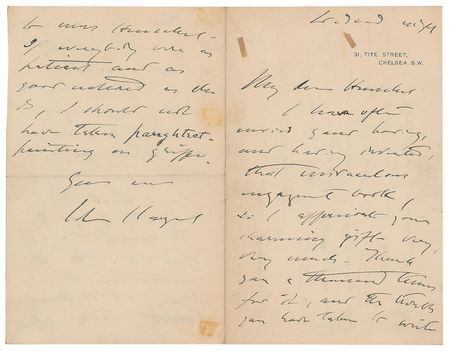 31, TITE STREET,
CHELSEA. S.W.
My dear Henschel
I have often
envied your having,
and having invented,
that miraculous
engagement book,
so I appreciate your
charming gift very,
very much. Thank
you a thousand times
for it, and the trouble
you have taken to write
to Mrs Henschel.
If everybody were as
patient and as
good natured as she
is, I should not
have taken
painting en grippe.
Yours ever
John S Sargent